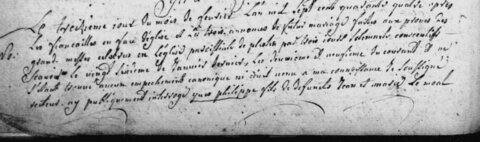 Le treizieme jour du mois de fevrier l'an mil sept cent quarante quatre apres
les fiancailles en face d'eglise et trois annonces de futur mariage faites aux prones des
grand messes en l'eglise parroissiale de par trois jours
le vingt sixieme de janvier dernier, les deuxieme et neufieme du courant
aucun empechement canonique ni civil venu a ma connoissance je soussigné
recteur ay publiquement interrogé yves philippe fils de defunts Jean et marie le moal